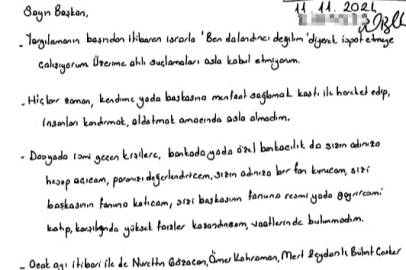 Sayın Başkan,
11.11.2021
- Yargılamanın başından itibaren ısrarla 'Ben dolandırıcı değilim' diyerek ispat etmeye
çalışıyorum Üzerime atılı suçlamaları asla kabul etmiyorum.
- Hiçbir zaman, kendime yada başkasına menfaat sağlamak kastı ile hareket edip,
insanları kandırmak, aldatmak amacında asla olmadım.
- Dosyada ismi geçen kişilere, bankada yada özel bankacılık da sizin adınıza
hesap açıcam, paranızı değerlendiricem, sizin adınıza bir fon kurucam, sizi
başkasının fonuna katıcam, sizi başkasının fonuna resmi yada gayriresmi
katıp, karşılığında yüksek faizler kazandırıcam, vaatlerinde bulunmadım.
- Ocak ayı itibari ile de Nurettin Özacan, Ömer Kahraman, Mert Zeydanlı, Bulut Canker